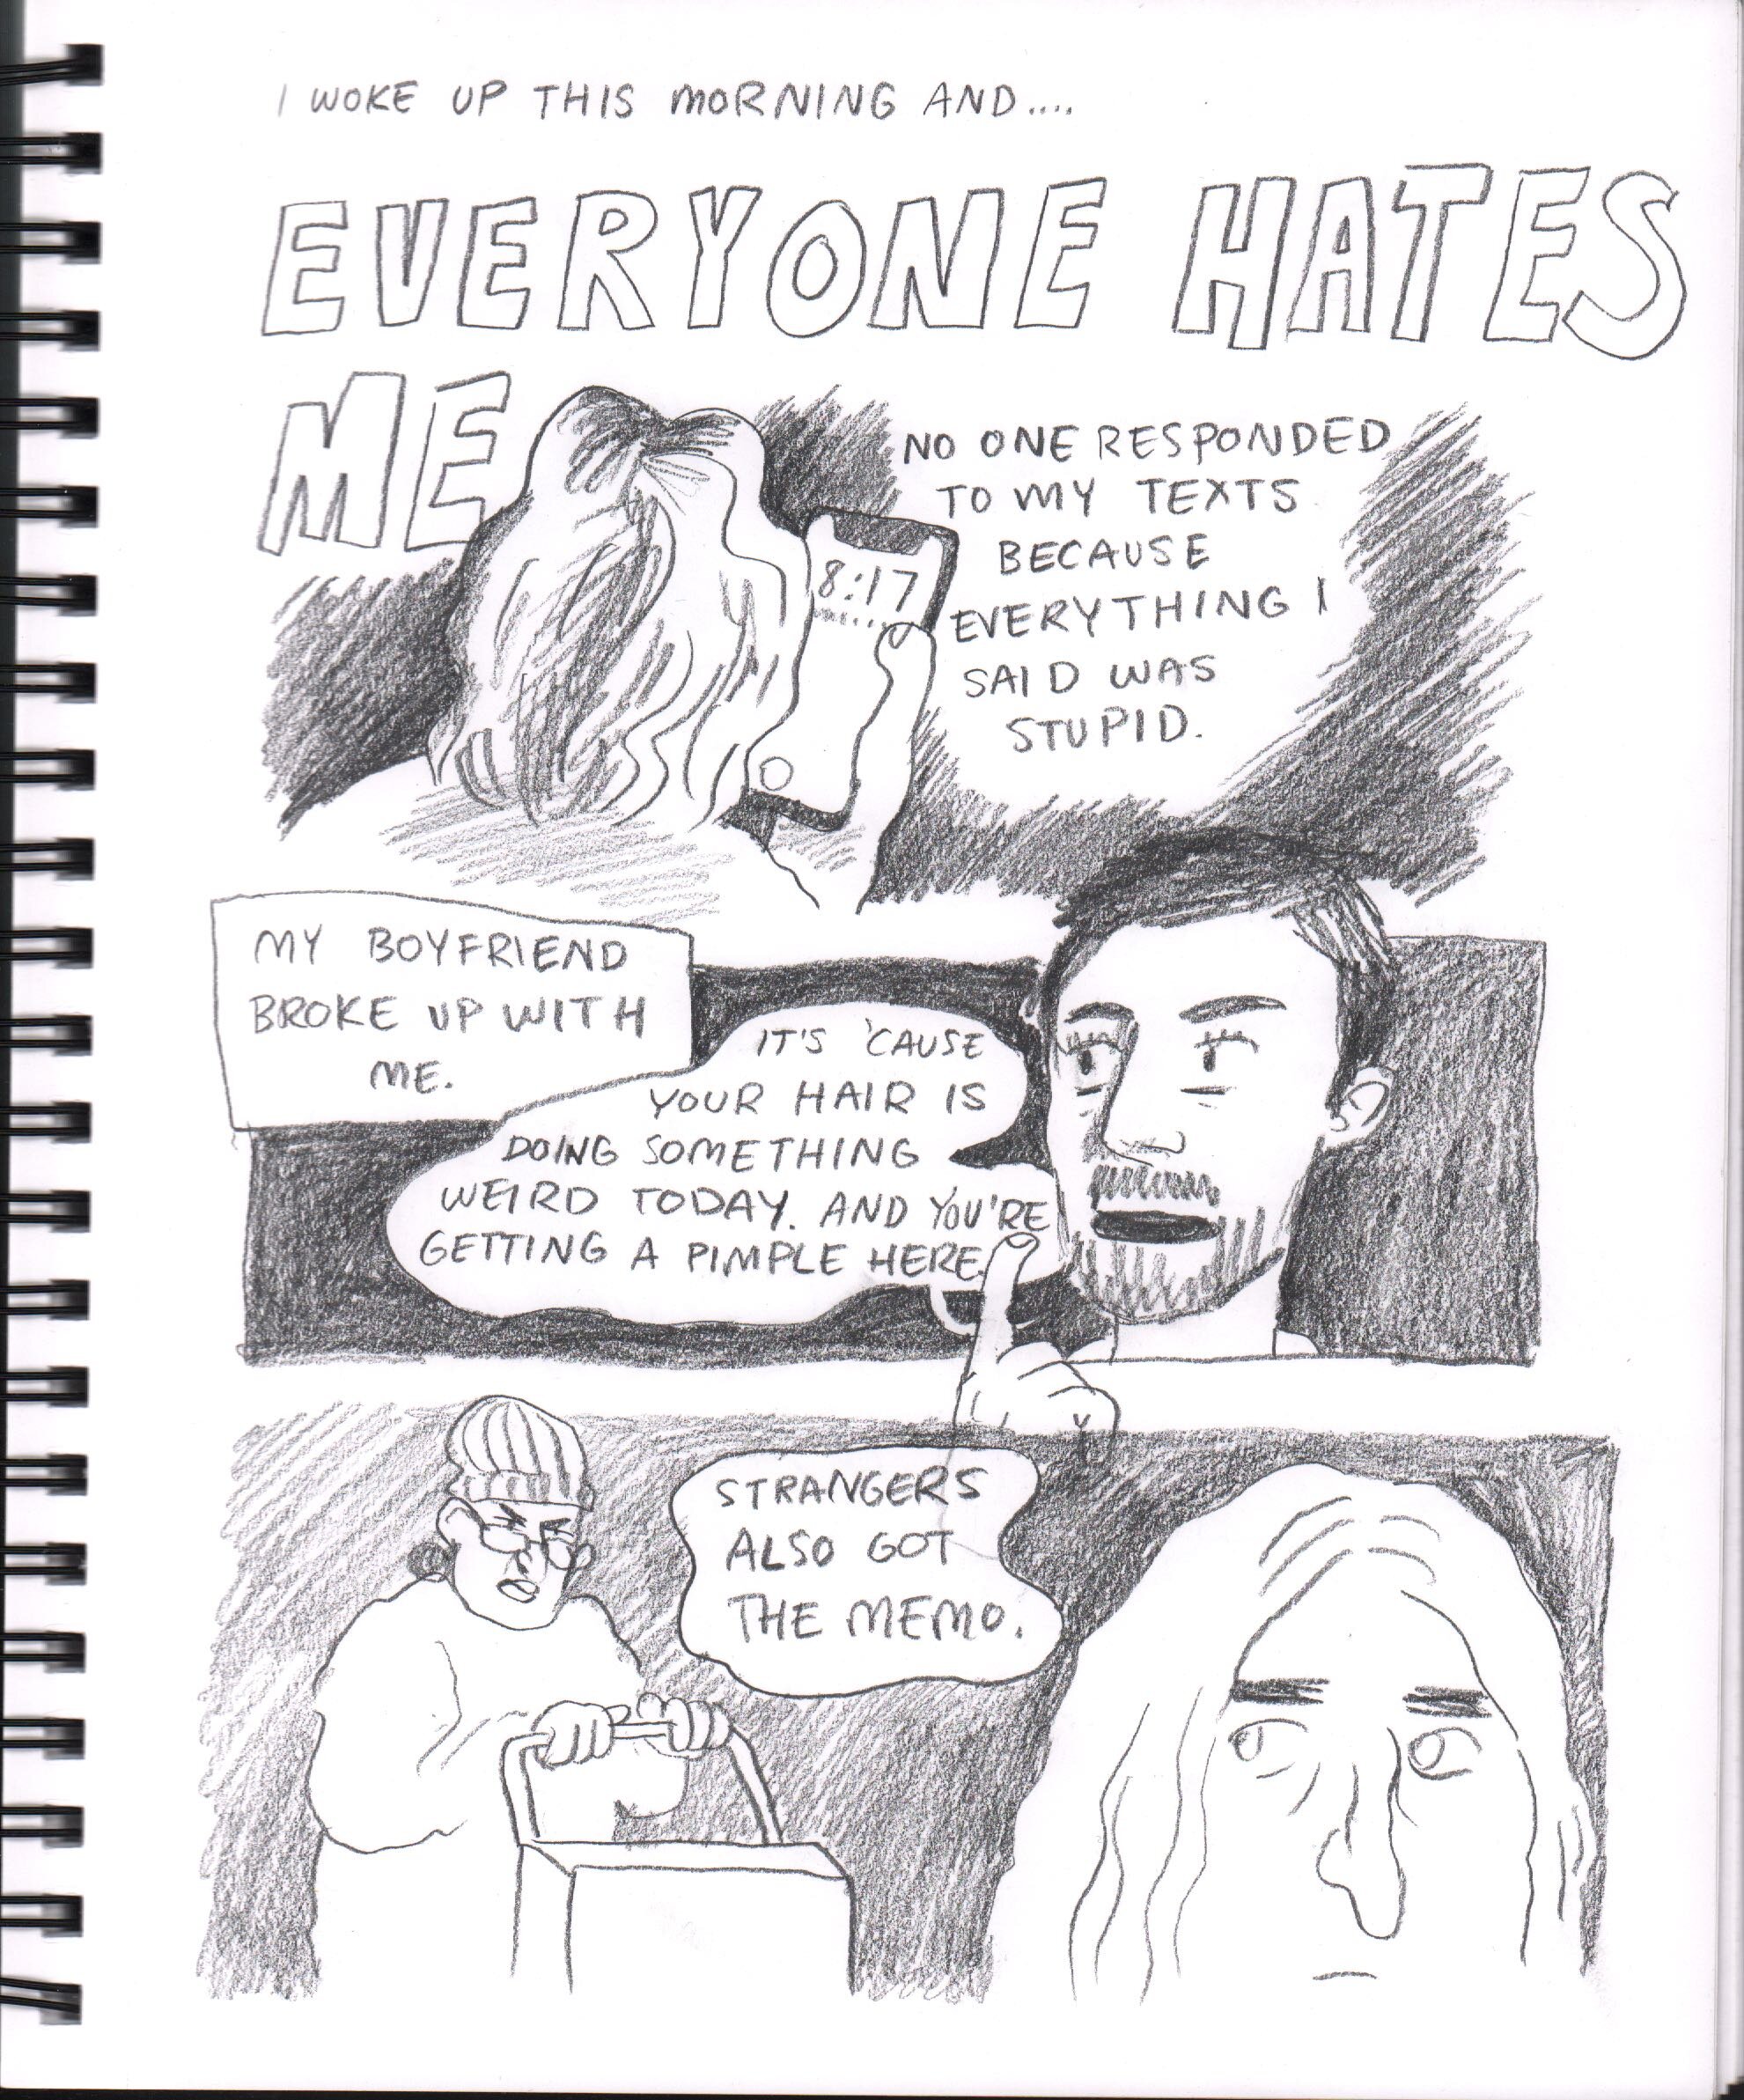 I WOKE UP THIS MORNING AND....
EVERYONE HATES
ME
NO ONE RESPONDED
TO MY TEXTS
BECAUSE
EVERYTHING I
SAID WAS
STUPID.
8:17
MY BOYFRIEND
BROKE UP WITH
ME.
IT'S 'CAUSE
YOUR HAIR IS
DOING SOMETHING
WEIRD TODAY. AND YOU'RE
GETTING A PIMPLE HERE.
STRANGERS
ALSO GOT
THE MEMO.